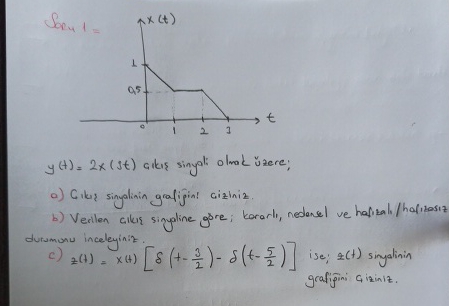 Soru 1 =
x(t)
1
0,5
0 1 2 3 t
y(t) = 2x(3t) çıkış sinyali olmak üzere;
a) Çıkış sinyalinin grafiğini çiziniz.
b) Verilen çıkış sinyaline göre; kararlı, nedensel ve hafızalı/hafızasız
durumunu inceleyiniz.
c) z(t) = x(t) [δ(t-3/2) - δ(t-5/2)] ise; z(t) sinyalinin
grafiğini çiziniz.